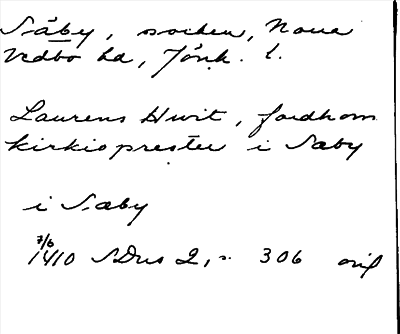 Säby, socken, Norra
Vedbo hd, Jönk. l.
Laurens Hwit, fordhom
kirkioprester i Sæby
i Sæby
7/6
1410 SDns 2, s. 306 orig